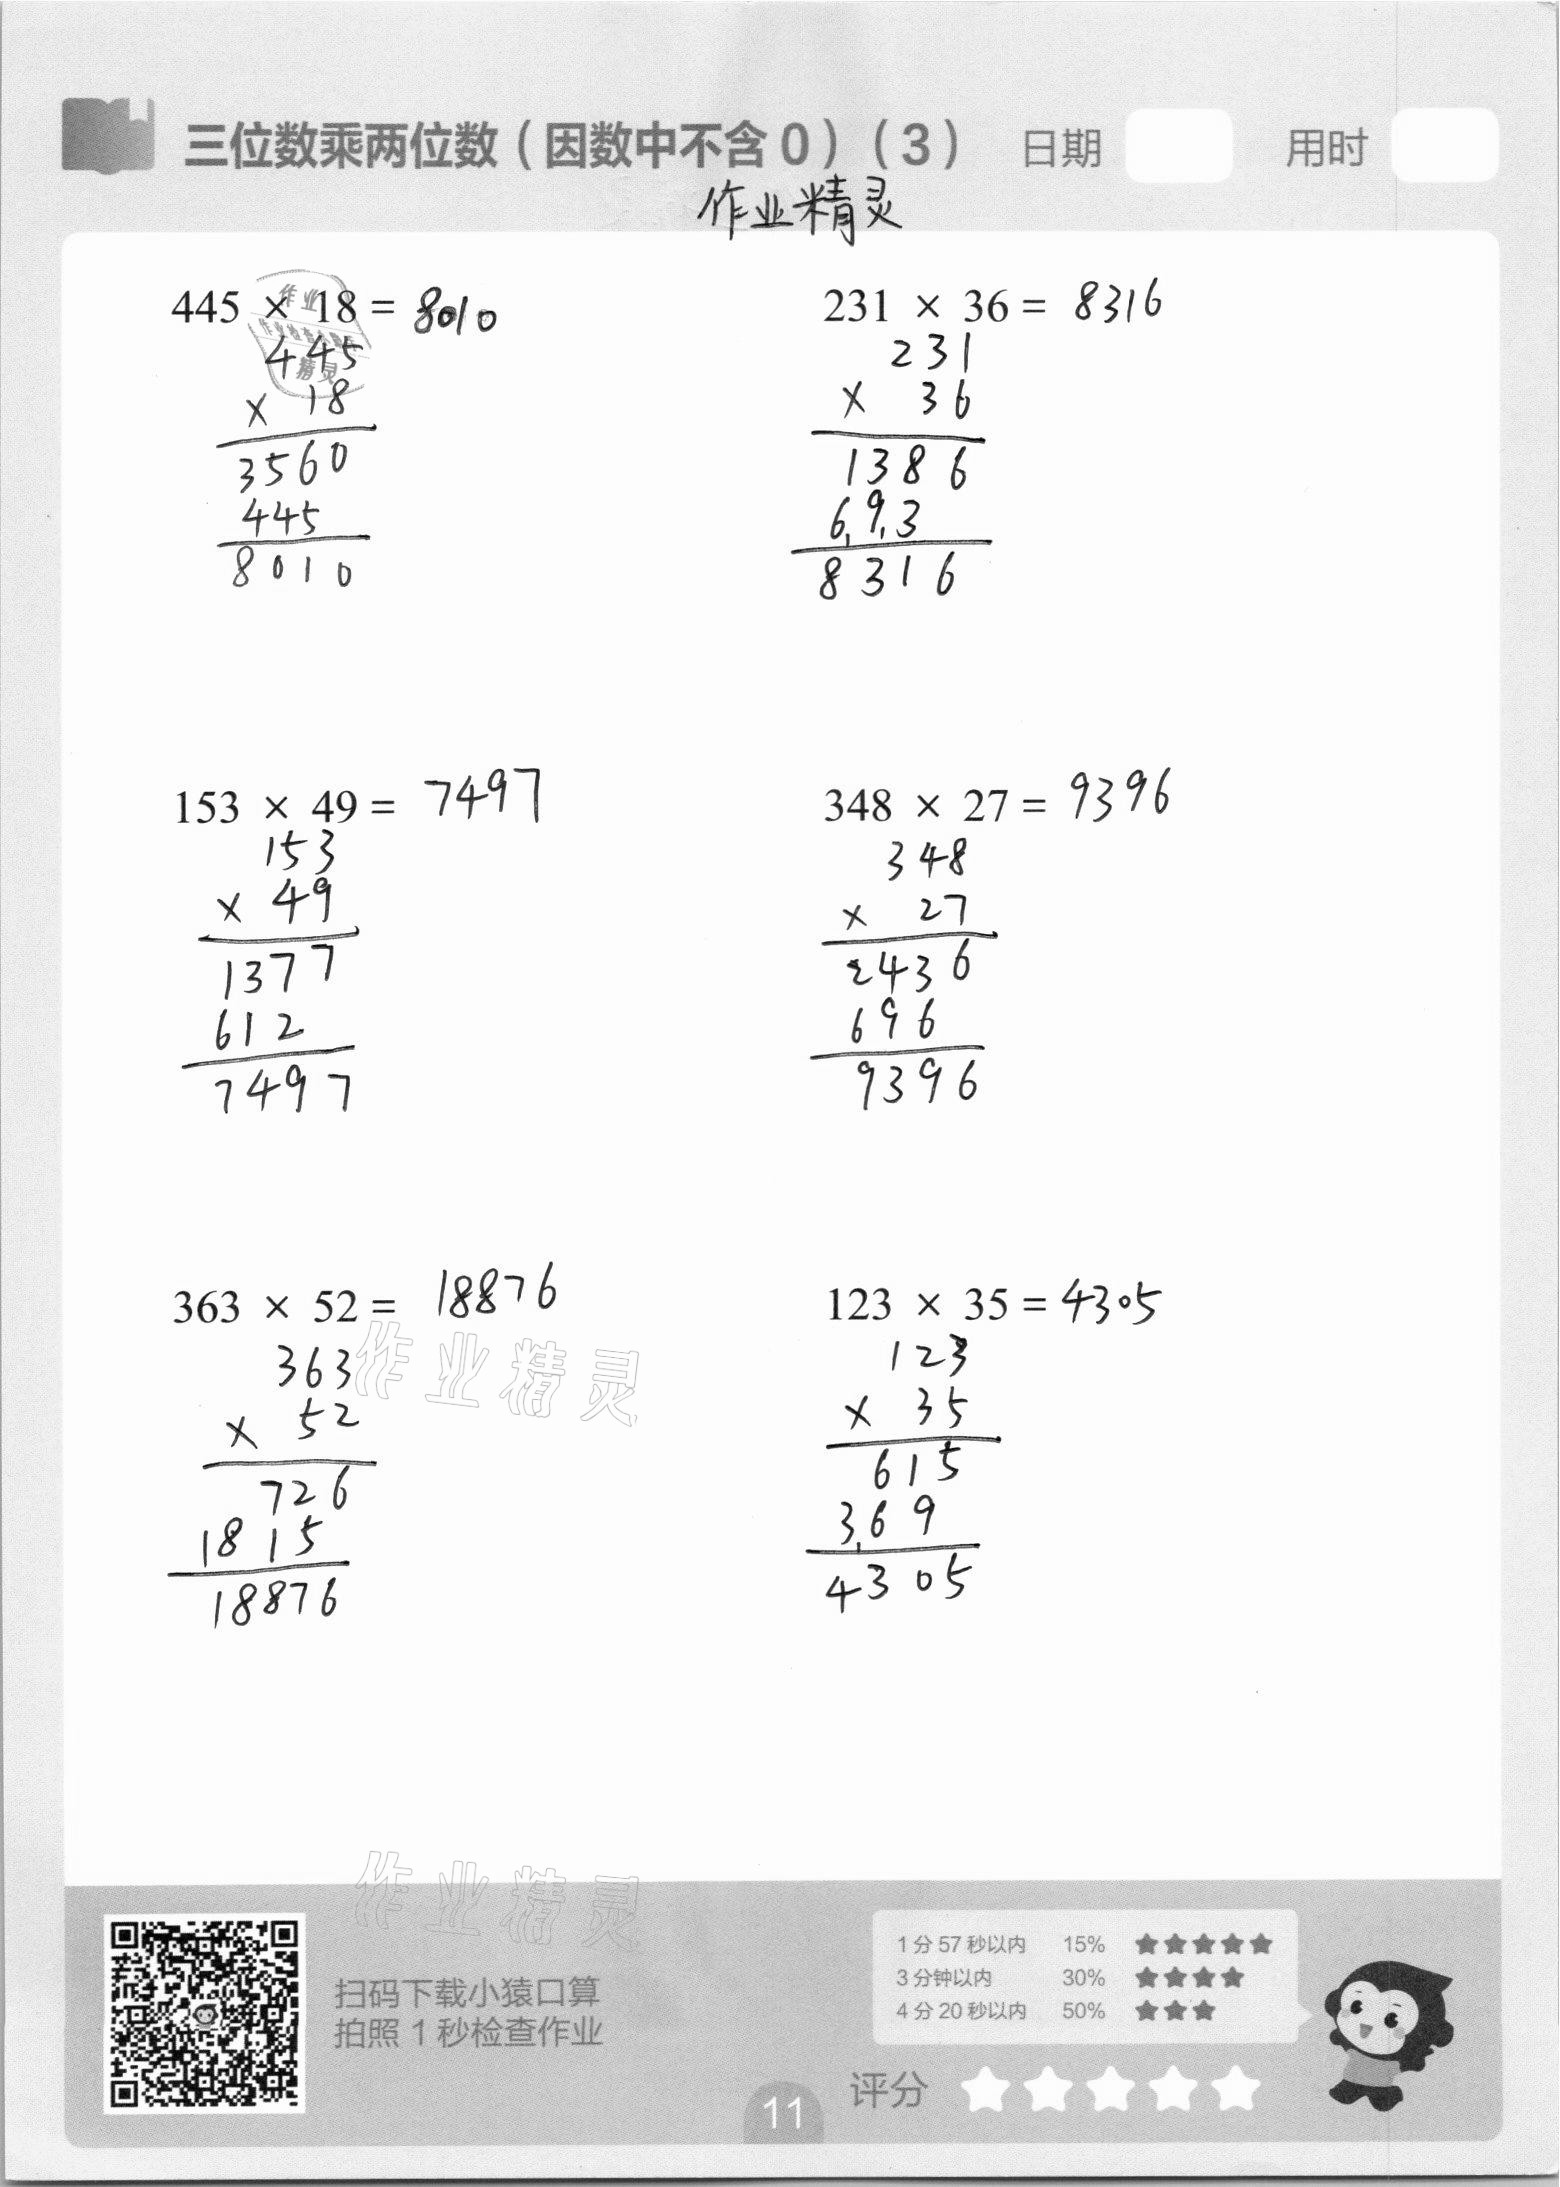 三位数乘两位数（因数中不含 0）（3） 日期 用时
作业精灵
445 × 18 = 8010
作业
作业检查小帮手
精灵
445
× 18
3560
445
8010
231 × 36 = 8316
231
× 36
1386
693
8316
153 × 49 = 7497
153
× 49
1377
612
7497
348 × 27 = 9396
348
× 27
2436
696
9396
363 × 52 = 18876
363
× 52
726
1815
18876
作业精灵
123 × 35 = 4305
123
× 35
615
369
4305
作业精灵
扫码下载小猿口算
拍照 1 秒检查作业
1 分 57 秒以内 15% ★★★★★
3 分钟以内 30% ★★★★
4 分 20 秒以内 50% ★★★
评分
11